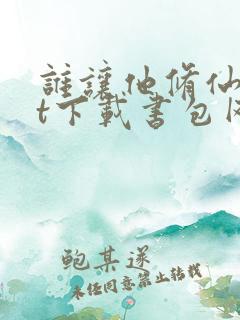 誰讓他脩仙
t下載書包
鲍某遂
未经同意禁止转载